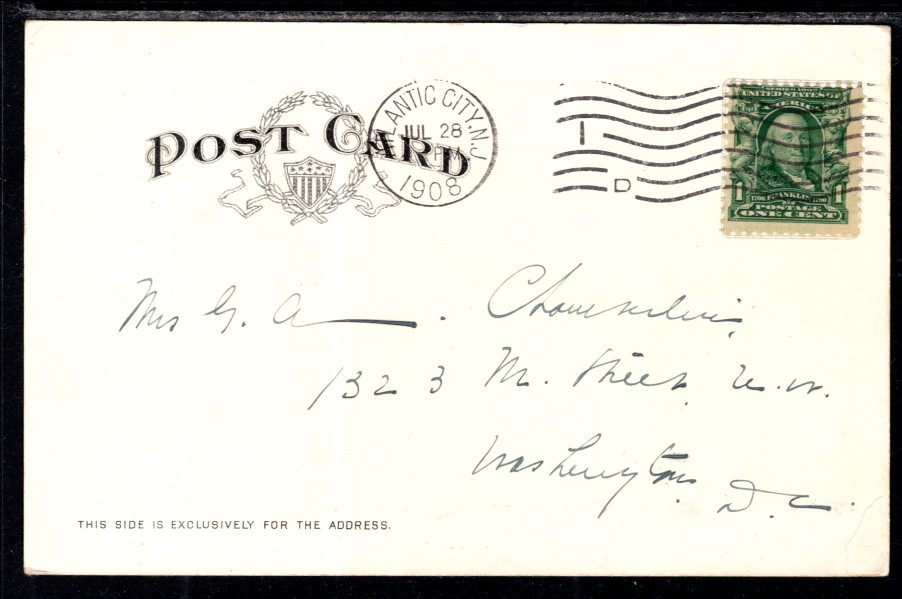 POST CARD
ATLANTIC CITY, N.J.
JUL 28
PM
1908
1
D
SERIES 1902
UNITED STATES OF
AMERICA
1706 FRANKLIN 1790
POSTAGE
1 ONE CENT 1
Mrs G. A. Chamberlin,
1323 M. Street, N.W.
Washington,
D.C.
THIS SIDE IS EXCLUSIVELY FOR THE ADDRESS.